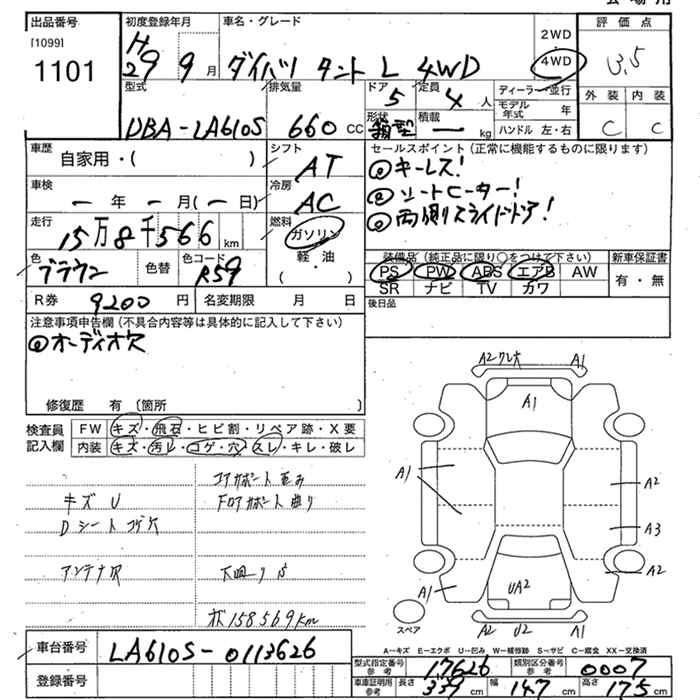 会場用
出品番号
[1099]
1101
初度登録年月
H29 9月
車名・グレード
ダイハツ タント L 4WD
2WD
4WD
評価点
3.5
外装 内装
C C
型式
DBA-LA610S
排気量
660 cc
ドア
5
定員
4 人
形状
箱型
積載
ー kg
ディーラー・並行
モデル年式 年
ハンドル 左・右
車歴
自家用・( )
シフト
AT
車検
ー 年 ー 月(ー 日)
冷房
AC
走行
15万8千566 km
燃料
ガソリン
軽・油
( )
色
ブラウン
色替
色コード
R59
R券 9200 円
名変期限 月 日
セールスポイント(正常に機能するものに限ります)
◎キーレス!
◎シートヒーター!
◎両側スライドドア!
装備品(純正品に限り○をつけて下さい)
PS PW ABS エアB AW
SR ナビ TV カワ
新車保証書
有・無
後日品
注意事項申告欄(不具合内容等は具体的に記入して下さい)
◎オーディオ欠
修復歴 有 (箇所 )
検査員記入欄
FW キズ・飛石・ヒビ割・リペア跡・X要
内装 キズ・汚レ・コゲ・穴・スレ・キレ・破レ
コアサポート歪み
キズ U
Fロアサポート曲り
Dシートコゲ穴
アンテナ欠
下廻りS
オバ158569km
A2ワレ大 A1
A1
A1
A2
A3
A2
A1
UA2
A2 U2 A1
スペア
A─キズ E─エクボ U─凹み W─補修跡 S─サビ C─腐食 XX─交換済
車台番号
LA610S-0113626
登録番号
型式指定番号 参考 17626
類別区分番号 参考 0007
車庫証明用 参考 長さ 339 cm 幅 147 cm 高さ 175 cm